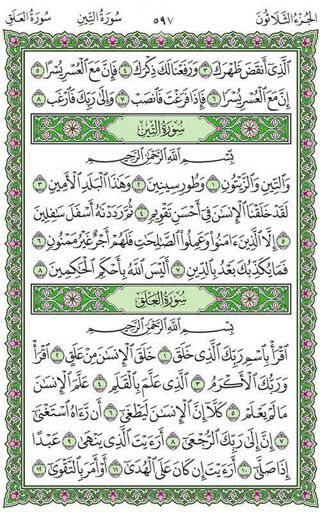 سُورَةُ العَلَقِ سُورَةُ التِّينِ ٥٩٧ الجُزْءُ الثَّلَاثُونَ
ٱلَّذِىٓ أَنقَضَ ظَهْرَكَ ٣ وَرَفَعْنَا لَكَ ذِكْرَكَ ٤ فَإِنَّ مَعَ ٱلْعُسْرِ يُسْرًا ٥
إِنَّ مَعَ ٱلْعُسْرِ يُسْرًا ٦ فَإِذَا فَرَغْتَ فَٱنصَبْ ٧ وَإِلَىٰ رَبِّكَ فَٱرْغَب ٨
سُورَةُ التِّينِ
بِسْمِ ٱللَّهِ ٱلرَّحْمَٰنِ ٱلرَّحِيمِ
وَٱلتِّينِ وَٱلزَّيْتُونِ ١ وَطُورِ سِينِينَ ٢ وَهَٰذَا ٱلْبَلَدِ ٱلْأَمِينِ ٣
لَقَدْ خَلَقْنَا ٱلْإِنسَٰنَ فِىٓ أَحْسَنِ تَقْوِيمٍ ٤ ثُمَّ رَدَدْنَٰهُ أَسْفَلَ سَٰفِلِينَ
٥ إِلَّا ٱلَّذِينَ ءَامَنُوا۟ وَعَمِلُوا۟ ٱلصَّٰلِحَٰتِ فَلَهُمْ أَجْرٌ غَيْرُ مَمْنُونٍ ٦
فَمَا يُكَذِّبُكَ بَعْدُ بِٱلدِّينِ ٧ أَلَيْسَ ٱللَّهُ بِأَحْكَمِ ٱلْحَٰكِمِينَ ٨
سُورَةُ العَلَقِ
بِسْمِ ٱللَّهِ ٱلرَّحْمَٰنِ ٱلرَّحِيمِ
ٱقْرَأْ بِٱسْمِ رَبِّكَ ٱلَّذِى خَلَقَ ١ خَلَقَ ٱلْإِنسَٰنَ مِنْ عَلَقٍ ٢ ٱقْرَأْ
وَرَبُّكَ ٱلْأَكْرَمُ ٣ ٱلَّذِى عَلَّمَ بِٱلْقَلَمِ ٤ عَلَّمَ ٱلْإِنسَٰنَ
مَا لَمْ يَعْلَمْ ٥ كَلَّآ إِنَّ ٱلْإِنسَٰنَ لَيَطْغَىٰٓ ٦ أَن رَّءَاهُ ٱسْتَغْنَىٰٓ
٧ إِنَّ إِلَىٰ رَبِّكَ ٱلرُّجْعَىٰٓ ٨ أَرَءَيْتَ ٱلَّذِى يَنْهَىٰ ٩ عَبْدًا
إِذَا صَلَّىٰٓ ١٠ أَرَءَيْتَ إِن كَانَ عَلَى ٱلْهُدَىٰٓ ١١ أَوْ أَمَرَ بِٱلتَّقْوَىٰٓ ١٢